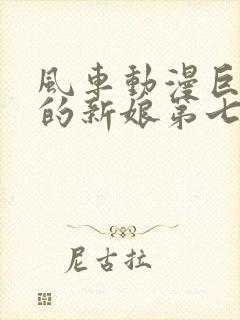 風車動漫巨
的新娘第七
尼古拉